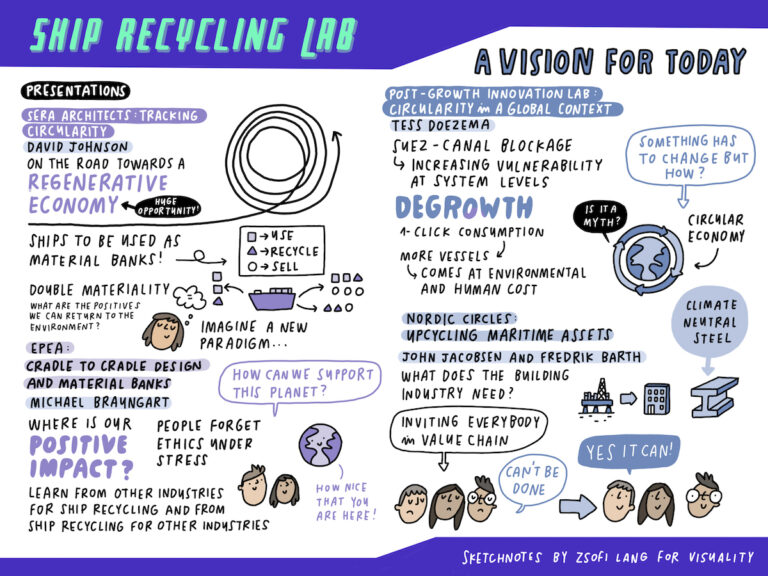 SHIP RECYCLING LAB
A VISION FOR TODAY
PRESENTATIONS
SERA ARCHITECTS: TRACKING
CIRCULARITY
DAVID JOHNSON
ON THE ROAD TOWARDS A
REGENERATIVE
ECONOMY
HUGE
OPPORTUNITY!
SHIPS TO BE USED AS
MATERIAL BANKS!
→ USE
→ RECYCLE
→ SELL
DOUBLE MATERIALITY
WHAT ARE THE POSITIVES
WE CAN RETURN TO THE
ENVIRONMENT?
IMAGINE A NEW
PARADIGM...
EPEA:
CRADLE TO CRADLE DESIGN
AND MATERIAL BANKS
MICHAEL BRAUNGART
HOW CAN WE SUPPORT
THIS PLANET?
WHERE IS OUR
POSITIVE
IMPACT?
PEOPLE FORGET
ETHICS UNDER
STRESS
HOW NICE
THAT YOU
ARE HERE!
LEARN FROM OTHER INDUSTRIES
FOR SHIP RECYCLING AND FROM
SHIP RECYCLING FOR OTHER INDUSTRIES
POST-GROWTH INNOVATION LAB:
CIRCULARITY in A GLOBAL CONTEXT
TESS DOEZEMA
SUEZ-CANAL BLOCKAGE
INCREASING VULNERABILITY
AT SYSTEM LEVELS
SOMETHING HAS
TO CHANGE BUT
HOW?
DEGROWTH
1-CLICK CONSUMPTION
MORE VESSELS
COMES AT ENVIRONMENTAL
AND HUMAN COST
IS IT A
MYTH?
CIRCULAR
ECONOMY
NORDIC CIRCLES:
UPCYCLING MARITIME ASSETS
JOHN JACOBSEN AND FREDRIK BARTH
WHAT DOES THE BUILDING
INDUSTRY NEED?
CLIMATE
NEUTRAL
STEEL
INVITING EVERYBODY
in VALUE CHAIN
CAN'T BE
DONE
YES IT CAN!
SKETCHNOTES BY ZSOFI LANG FOR VISUALITY